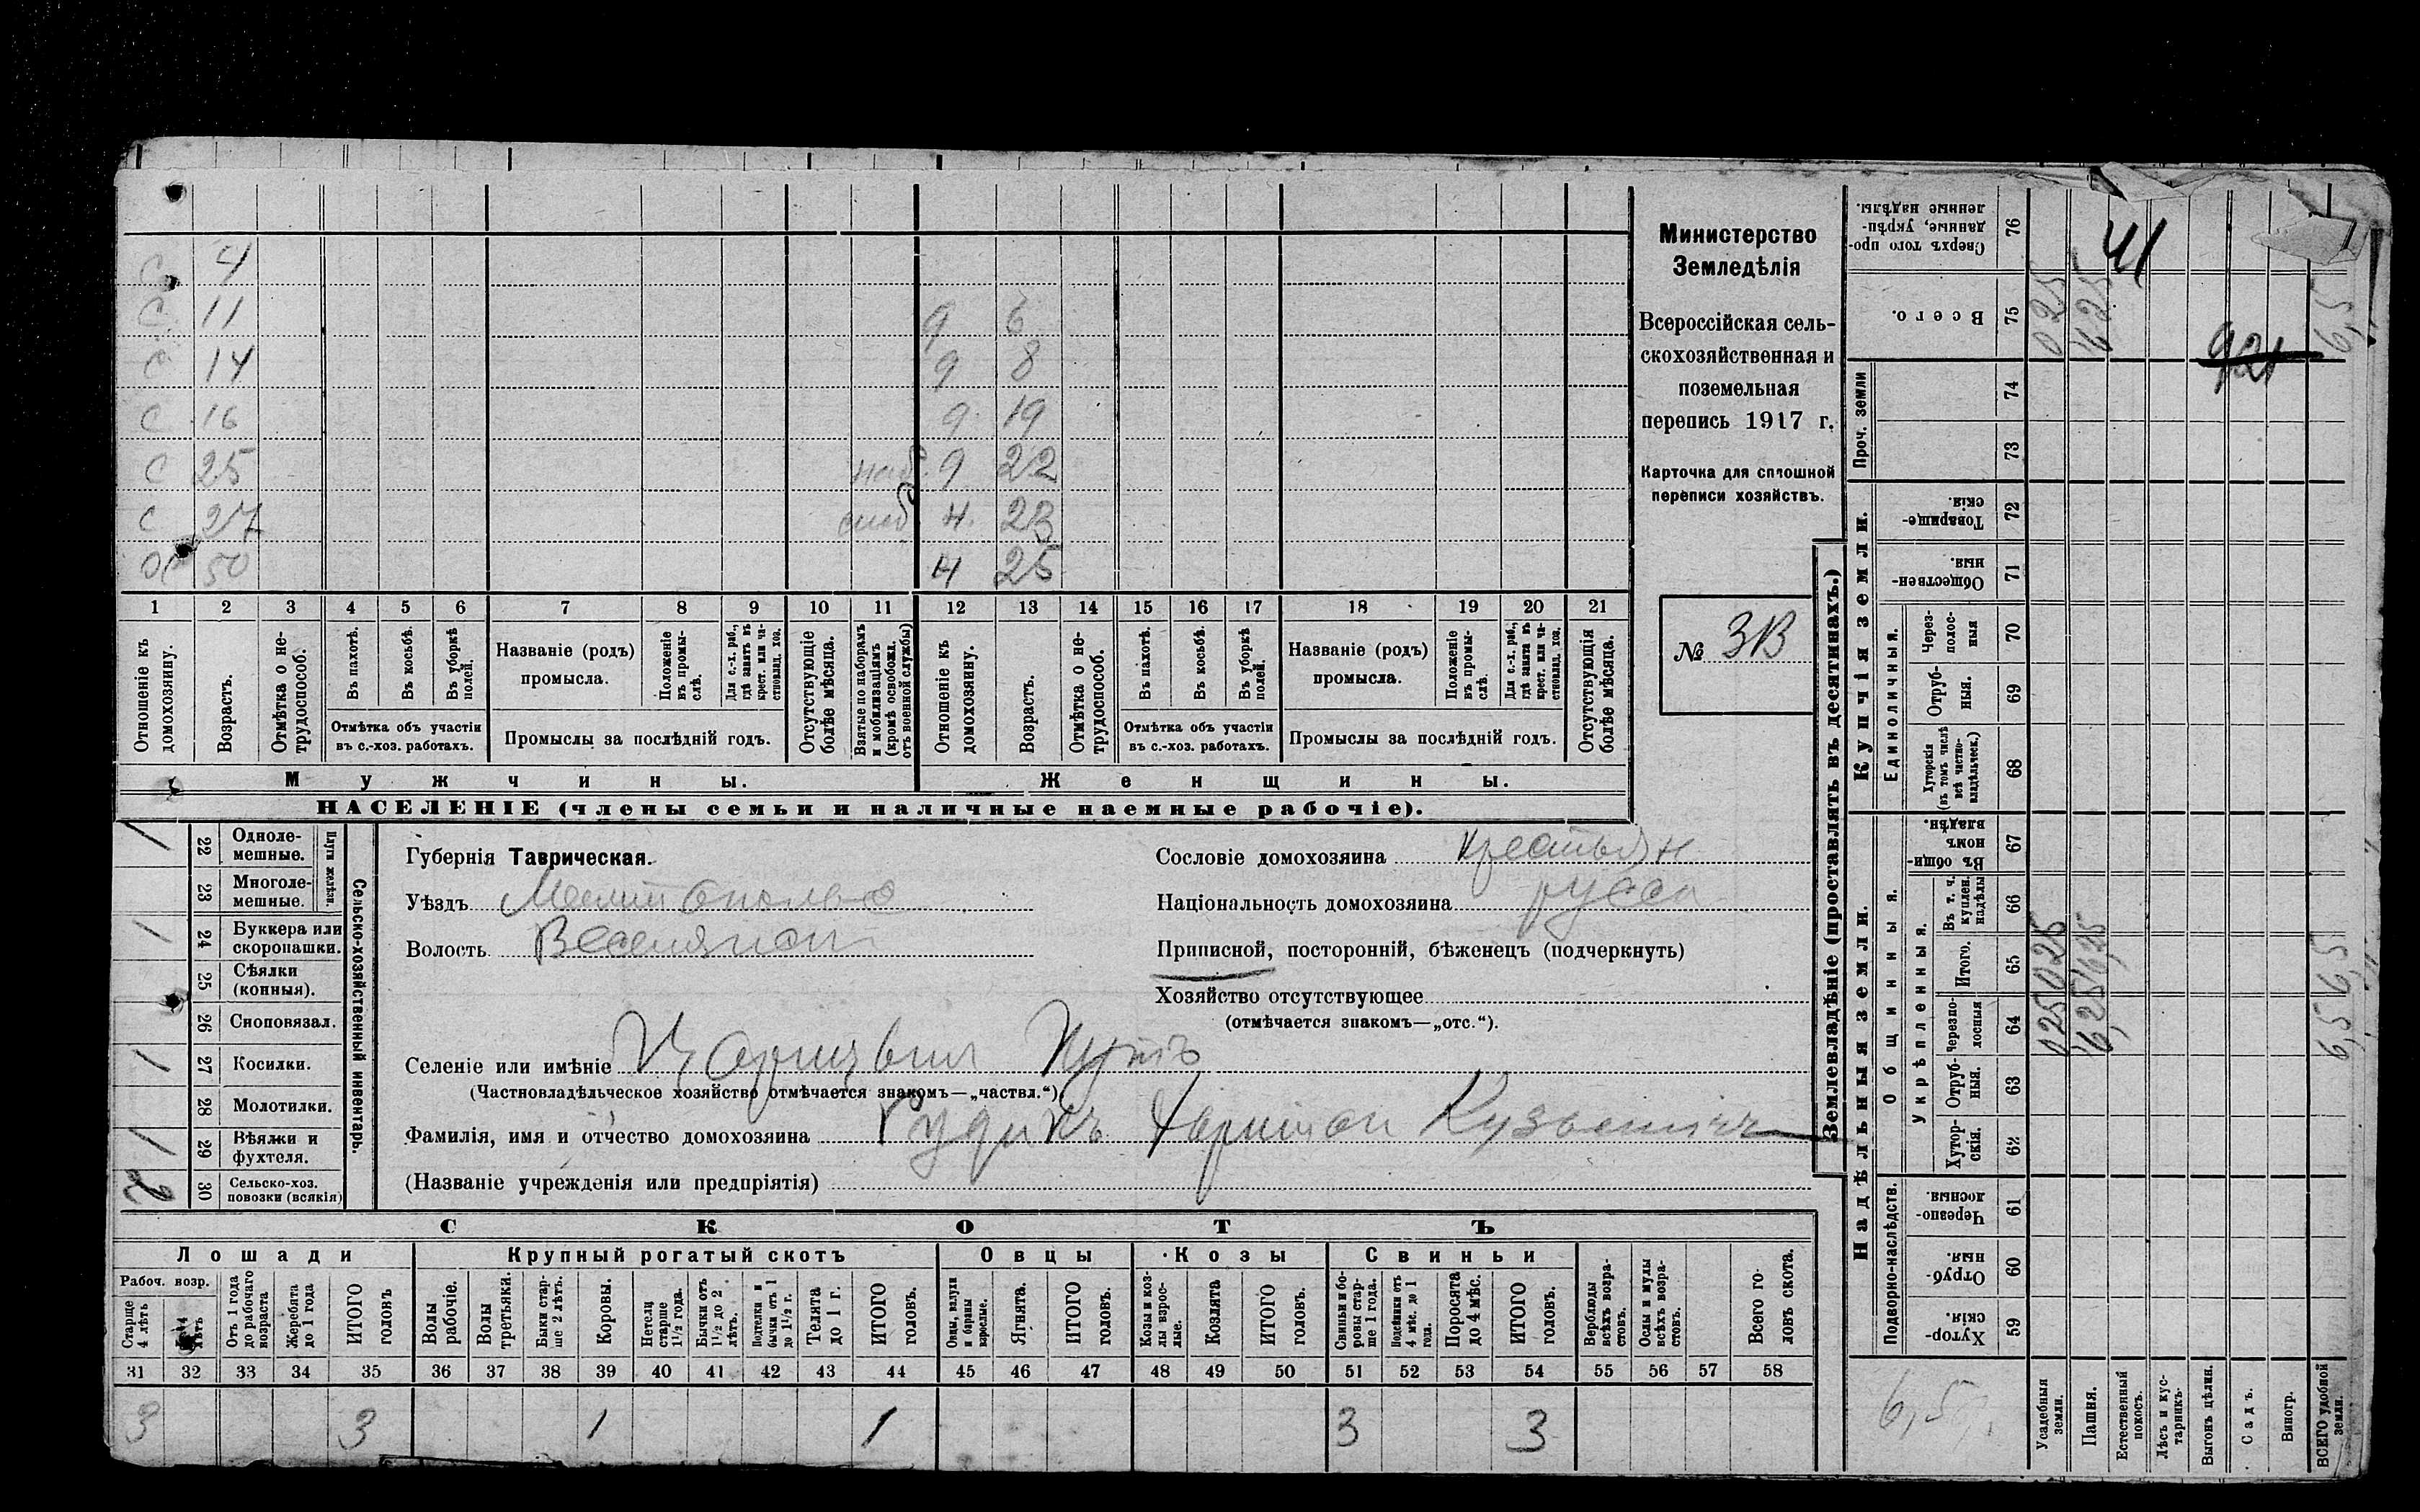 Министерство
Земледѣлія
Всероссійская сель-
скохозяйственная и
поземельная
перепись 1917 г.
Карточка для сплошной
переписи хозяйствъ.
№ 3В
С 4
С 11
С 14
С 16
С 25
С 27
50
6
8
19
22
Н 23
Н 25
1 2 3 4 5 6 7 8 9 10 11 12 13 14 15 16 17 18 19 20 21
Отношеніе къ домохозяину.
Возрастъ.
Отмѣтка о не-трудоспособ.
Въ пахотѣ.
Въ косьбѣ.
Въ уборкѣ полей.
Отмѣтка объ участіи
въ с.-хоз. работахъ.
Названіе (родъ)
промысла.
Положеніе въ промы-слѣ.
Для с.-х. раб., гдѣ занятъ въ крест. или ча-стновлад. хоз.
Промыслы за послѣдній годъ.
Отсутствующіе болѣе мѣсяца.
Взятые по наборамъ и мобилизаціямъ (кромѣ освобожд. отъ военной службы)
Отношеніе къ домохозяину.
Возрастъ.
Отмѣтка о не-трудоспособ.
Въ пахотѣ.
Въ косьбѣ.
Въ уборкѣ полей.
Отмѣтка объ участіи
въ с.-хоз. работахъ.
Названіе (родъ)
промысла.
Положеніе въ промы-слѣ.
Для с.-х. раб., гдѣ занята въ крест. или ча-стновлад. хоз.
Промыслы за послѣдній годъ.
Отсутствующія болѣе мѣсяца.
Мужчины.
Женщины.
НАСЕЛЕНІЕ (члены семьи и наличные наемные рабочіе).
Сельско-хозяйственный инвентарь.
Плуги желѣзн.
1 22 Одноле-мешные.
23 Многоле-мешные.
1 24 Буккера или скоропашки.
25 Сѣялки (конныя).
26 Сноповязал.
1 27 Косилки.
28 Молотилки.
1 29 Вѣялки и фухтеля.
2 30 Сельско-хоз. повозки (всякія)
Губернія Таврическая.
Уѣздъ
Волость
Сословіе домохозяина крестьян
Національность домохозяина русск
Приписной, посторонній, бѣженецъ (подчеркнуть)
Хозяйство отсутствующее
(отмѣчается знакомъ—„отс.“).
Селеніе или имѣніе
(Частновладѣльческое хозяйство отмѣчается знакомъ—„частвл.“)
Фамилія, имя и отчество домохозяина
(Названіе учрежденія или предпріятія)
СКОТЪ
Лошади
Крупный рогатый скотъ
Овцы
Козы
Свиньи
Рабоч. возр.
Старше 4 лѣтъ
Отъ 1 года до рабочаго возраста
Жеребята до 1 года
ИТОГО головъ
Волы рабочіе.
Волы третьяки.
Быки стар-ше 2 лѣтъ.
Коровы.
Нетели старше 1½ года.
Бычки отъ 1½ до 2 лѣтъ.
Подтелки и бычки отъ 1 до 1½ г.
Телята до 1 г.
ИТОГО головъ.
Овцы, валухи и бараны взрослые.
Ягнята.
ИТОГО головъ.
Козы и коз-лы взрос-лые.
Козлята
ИТОГО головъ.
Свиньи и бо-ровы стар-ше 1 года.
Подсвинки отъ 4 мѣс. до 1 года.
Поросята до 4 мѣс.
ИТОГО головъ.
Верблюды всѣхъ возра-стовъ.
Ослы и мулы всѣхъ возра-стовъ.
Всего го-ловъ скота.
31 32 33 34 35 36 37 38 39 40 41 42 43 44 45 46 47 48 49 50 51 52 53 54 55 56 57 58
3 3 1 1 3 3
Землевладѣніе (проставлять въ десятинахъ.)
Надѣльныя земли.
Купчія земли.
Проч. земли
Подворно-наслѣдств.
Общинныя.
Укрѣпленныя.
Единоличныя.
Сверхъ того про-данные, укрѣп-ленные надѣлы. 76
Всего. 75
74
73
Товарище-скія. 72
Обществен-ныя. 71
Через-полос-ныя 70
Отруб-ныя. 69
Хуторскія (въ томъ числѣ всѣ частно-владѣльческ.) 68
Въ общи-номъ владѣн. 67
Въ т. ч. куплен. надѣлы 66
Итого. 65
Черезпо-лосныя 64
Отруб-ныя. 63
Хутор-скія. 62
Черезпо-лосныя 61
Отруб-ныя. 60
Хутор-скія. 59
41
921
025 6,25 6,5
025 025
6,25 6,25
6,5 6,5
Усадебныя земли.
Пашня.
Естественный покосъ.
Лѣсъ и кус-тарникъ.
Выгонъ цѣлин.
Садъ.
Виногр.
ВСЕГО удобной земли.